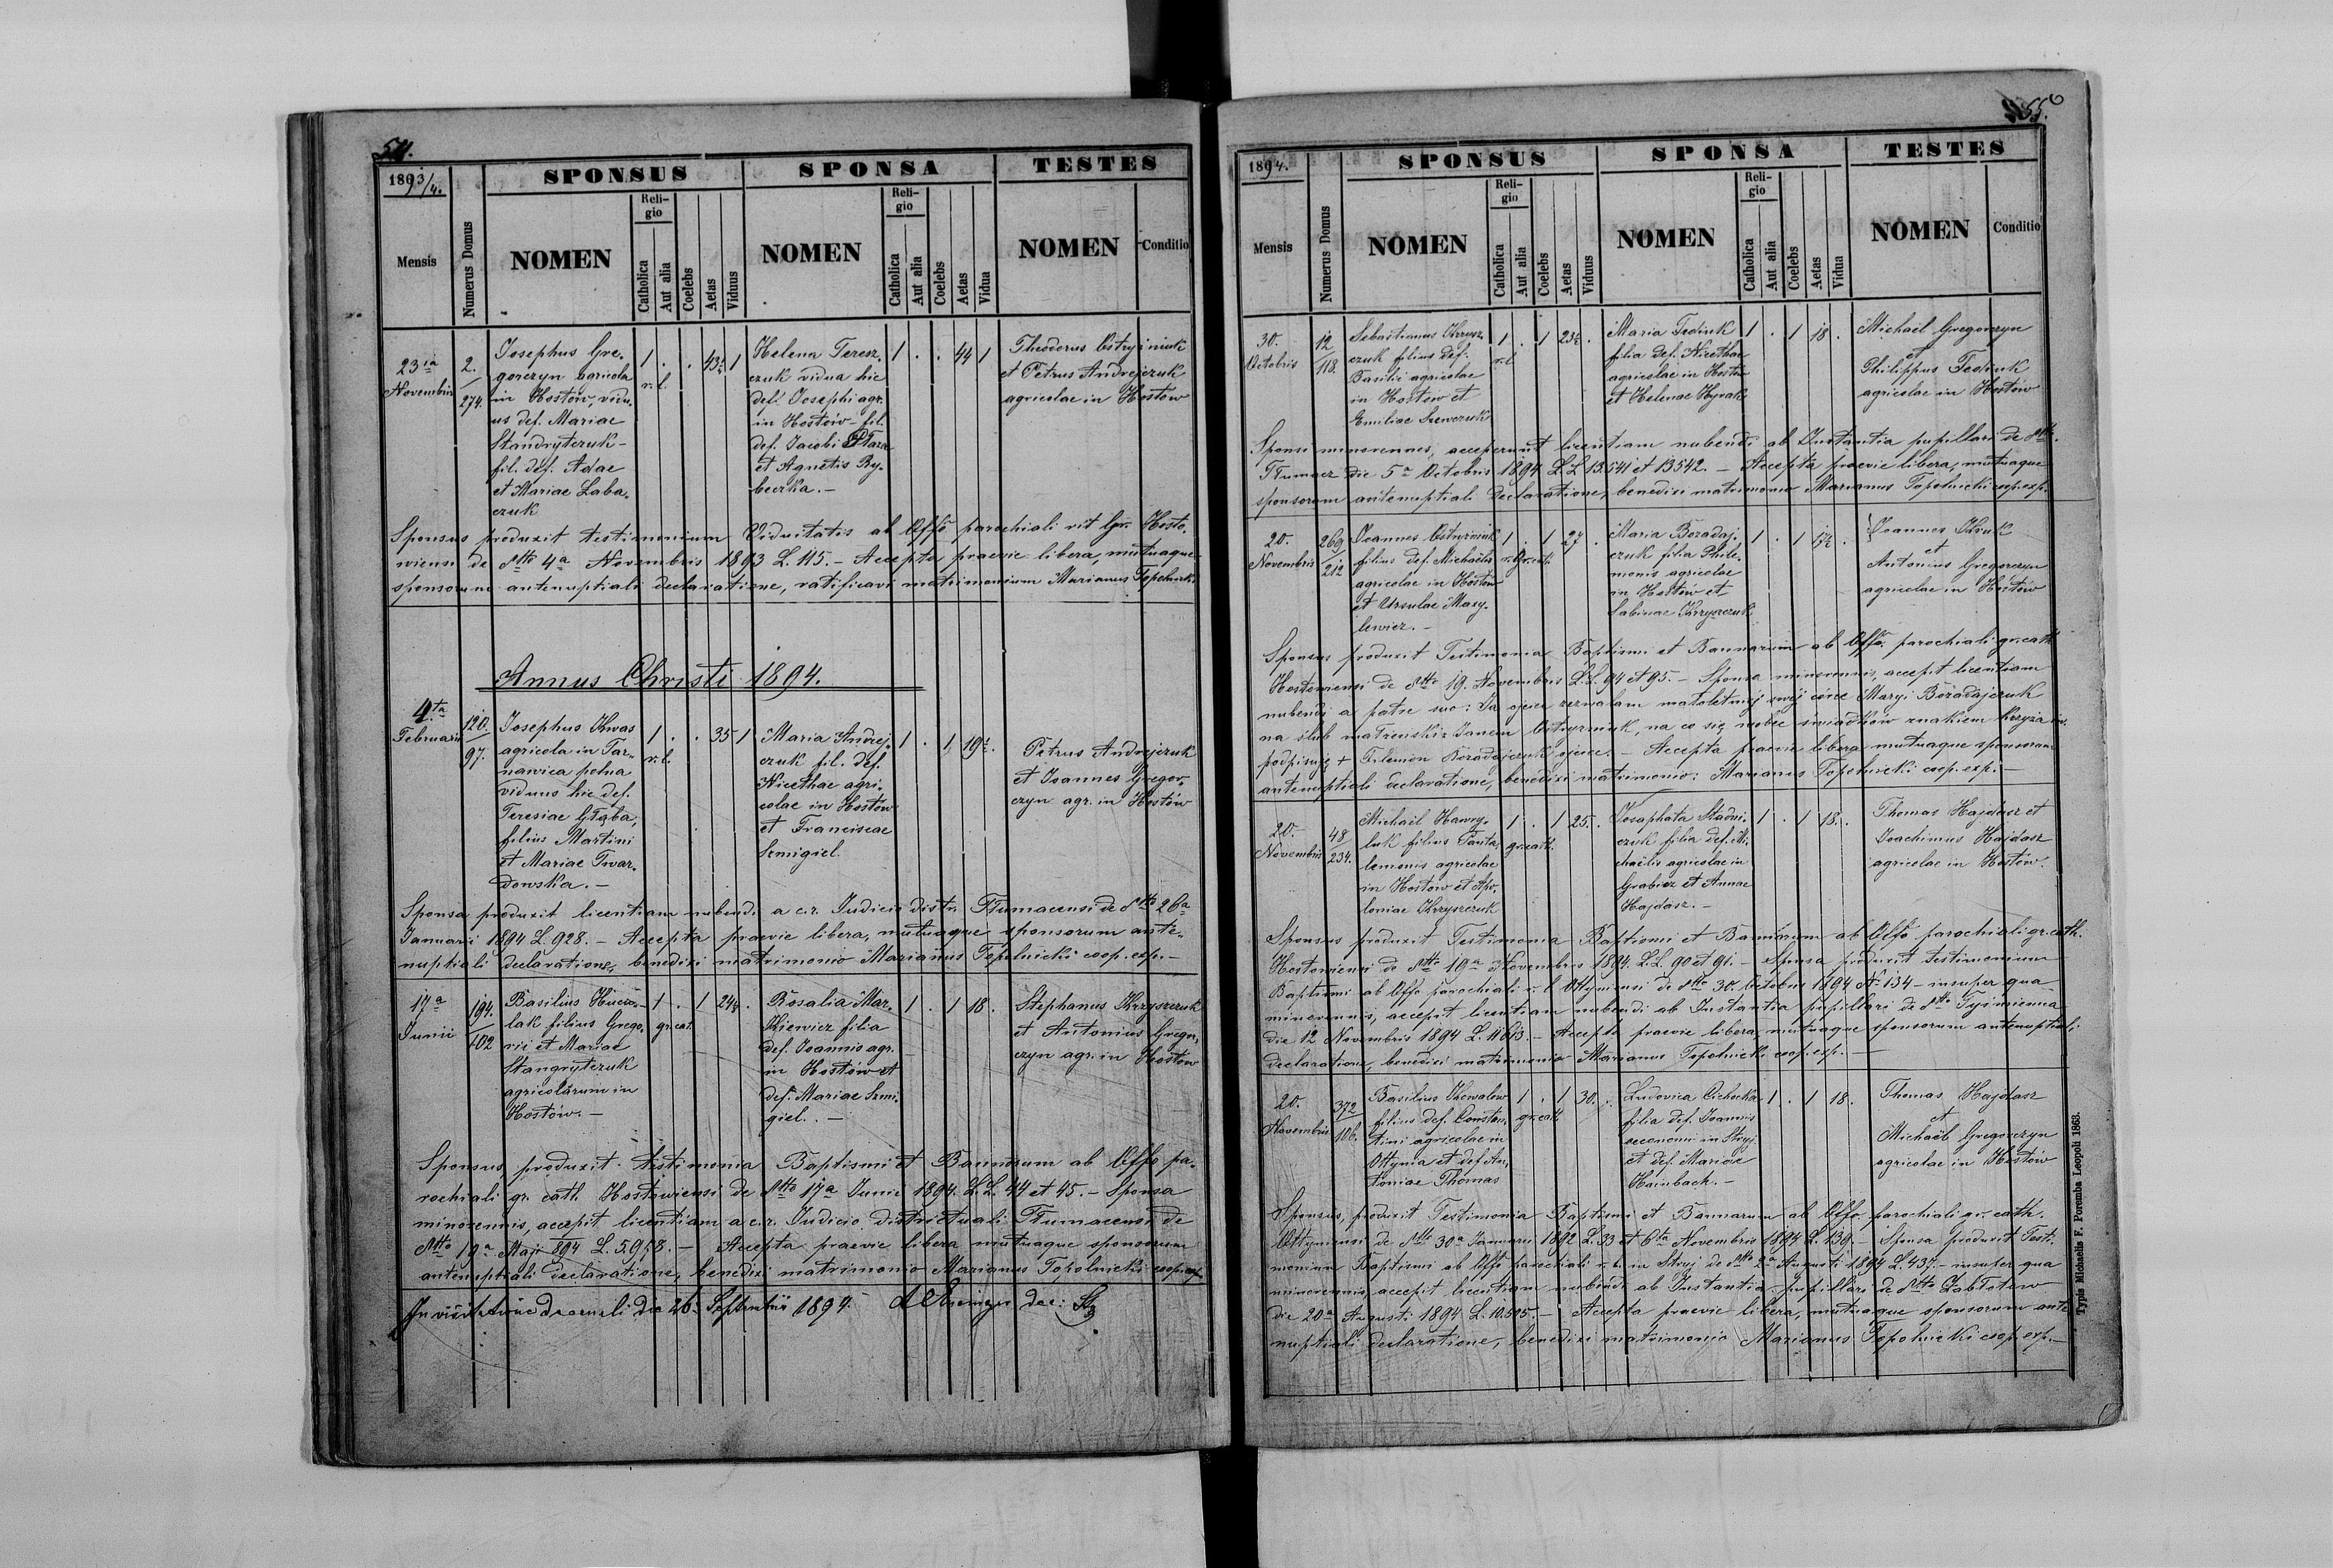 54.
1893/4.
SPONSUS
SPONSA
TESTES
Mensis
Numerus Domus
NOMEN
Religio
Catholica
Aut alia
Coelebs
Aetas
Viduus
NOMEN
Religio
Catholica
Aut alia
Coelebs
Aetas
Vidua
NOMEN
Conditio
23ia
Novembris
2.
274.
Josephus Gre-
gorczyn agricola
in Hostów, vidu-
us def. Mariae
Standrytczuk -
fil. def. Adae
et Mariae Laba-
czuk
1
r. l.
.
.
43½
1
Helena Teresz-
czuk vidua hic
def. Josephi agr.
in Hostów - fil.
def. Jacobi
et Agnetis Ry-
beczka. -
1
.
.
44
1
Theodorus Ostryżniuk
et Petrus Andrejczuk
agricolae in Hostów
Sponsus produxit testimonium Viduitatis ab Offo parochiali rit Gr. Hosto-
wiensi de dtto 4a Novembris 1893 L. 115. - Accepta praevie libera, mutuaque
sponsorum antenuptiali declaratione, ratificavi matrimonium Marianus Topolnicki
Annus Christi 1894.
4.ta
Februarii
120.
97.
Josephus Kwas
agricola in Tar-
nawica polna
viduus hic def.
Teresiae Głąba,
filius Martini
et Mariae Twar-
dowska. -
1
r. l.
.
.
35
1
Maria Andrej-
czuk fil. def.
Nicethae agri-
colae in Hostów
et Franciscae
Szmigiel.
1
.
1
19½
.
Petrus Andrejczuk
et Joannes Gregor-
czyn agr. in Hostów
Sponsa produxit licentiam nubendi a c. r. Judicio distr. Tłumacensi de dtto 26a
Januarii 1894 L. 928. - Accepta praevie libera, mutuaque sponsorum ante-
nuptiali declaratione, benedixi matrimonio Marianus Topolnicki coop. exp. -
17a
Junii
194.
102
Basilius Hucu-
lak filius Grego-
rii et Mariae
Stangrytczuk
agricolarum in
Hostów. -
1
gr. cat.
.
1
24½
.
Rosalia Mar-
kiewicz filia
def. Joannis agr.
in Hostów et
def. Mariae Szmi-
giel. -
1
.
1
18
.
Stephanus Krzyszczuk
et Antonius Gregor-
czyn agr. in Hostów
Sponsus, produxit testimonia Baptismi et Bannorum ab Offo pa-
rochiali gr. cath. Hostowiensi de dtto 17a Junii 1894. L.L. 44 et 45. - Sponsa
minorennis, accepit licentiam a c. r. Judicio districtuali Tłumacensi de
dtto 19a Maji 894 L. 5.958. - Accepta praevie libera mutuaque sponsorum
antenuptiali declaratione, benedixi matrimonio Marianus Topolnicki coop. exp.
In visitatione decanali die 26. Septembris 1894.
55.
1894.
SPONSUS
SPONSA
TESTES
Mensis
Numerus Domus
NOMEN
Religio
Catholica
Aut alia
Coelebs
Aetas
Viduus
NOMEN
Religio
Catholica
Aut alia
Coelebs
Aetas
Vidua
NOMEN
Conditio
30.
Octobris
12
118.
Sebastianus Krzysz-
czuk filius def.
Basilii agricolae
in Hostów et
Emiliae Szewczuk
1
r. l.
.
1
23½
.
Maria Fediuk
filia def. Nicethae
agricolae in Hostów
et Helenae Hyrak
1
.
1
18
.
Michaël Gregorczyn
et
Philippus Fediuk
agricolae in Hostów
Sponsi minorennes, acceperunt licentiam nubendi ab Instantia pupillari de dtto.
Tłumacz die 5a Octobris 1894 L.L. 13.541 et 13542. - Accepta praevie libera, mutuaque
sponsorum antenuptiali declaratione, benedixi matrimonio Marianus Topolnicki coop. exp.
20.
Novembris
269
212
Joannes Ostryżniuk
filius def. Michaëlis
agricolae in Hostów
et Ursulae Maxy-
lewicz. -
1
r. gr. cat.
.
1
27
.
Maria Bozadaj-
czuk filia Phile-
monis agricolae
in Hostów et
Sabinae Krzyszczuk
1
.
1
17½
.
Joannes Kruk
et
Antonius Gregorczyn
agricolae in Hostów
Sponsus produxit Testimonia Baptismi et Bannorum ab Offo. parochiali gr. cath.
Hostowiensi de dtto 19. Novembris L.L. 94 et 95. - Sponsa minorennis, accepit licentiam
nubendi a patre suo: Ja ojciec zezwalam małoletniej swej córce Maryi Bozadajczuk
na ślub małżeński z Janem Ostryżniuk, na co się wobec świadków znakiem krzyża św.
podpisuję + Filemon Bozadajczuk ojciec. - Accepta praevie libera mutuaque sponsorum
antenuptiali declaratione, benedixi matrimonio: Marianus Topolnicki coop. exp. -
20.
Novembris
48
234.
Michaël Hawry-
luk filius Panta-
lemonis agricolae
in Hostów et Apo-
loniae Krzyszczuk
1
gr. cath.
.
1
25.
.
Josaphata Stadni-
czuk filia def. Mi-
chaëlis agricolae in
Grabicz et Annae
Hajdasz. -
1
.
1
18.
.
Thomas Hajdasz et
Joachimus Hajdasz
agricolae in Hostów.
Sponsus produxit Testimonia Baptismi et Bannorum ab Offo parochiali gr. cath.
Hostowiensi de dtto 19a Novembris 1894. L.L. 90 et 91. - Sponsa produxit testimonium
Baptismi ab Offo parochiali r. l. Ottyniensi de dtto 30. Octobris 1894 N. 134 - insuper qua
minorennis, accepit licentiam nubendi ab Instantia pupillari de dtto Tyśmienica
die 12 Novembris 1894 L. 11613. - Accepta praevie libera, mutuaque sponsorum antenuptiali
declaratione, benedixi matrimonio Marianus Topolnicki coop. exp. -
20.
Novembris
372
106.
Basilius Kowalów
filius def. Constan-
tini agricolae in
Ottynia et def. An-
toniae Thomas
1
gr. cath.
.
1
30.
.
Ludovica Cichocka
filia def. Joannis
oeconomi in Stryj
et def. Mariae
Hainbach. -
1
.
1
18.
.
Thomas Hajdasz
et
Michaël Gregorczyn
agricolae in Hostów
Sponsus, produxit Testimonia Baptismi et Bannorum ab Offo parochiali gr. cath.
Ottyniensi de dtto 30a Januarii 1892 L. 33 et 6ta Novembris 1894 L. 139. - Sponsa produxit Testi-
monium Baptismi ab Offo parochiali r. l. in Stryj de dtto 2a Augusti 1894 L. 437. - insuper qua
minorennis, accepit licentiam nubendi ab Instantia pupillari de dtto Zabłotów
die 20a Augusti 1894 L. 10.805. - Accepta praevie libera, mutuaque sponsorum ante
nuptiali declaratione, benedixi matrimonio Marianus Topolnicki coop. exp. -
Typis Michaelis F. Poremba Leopoli 1863.